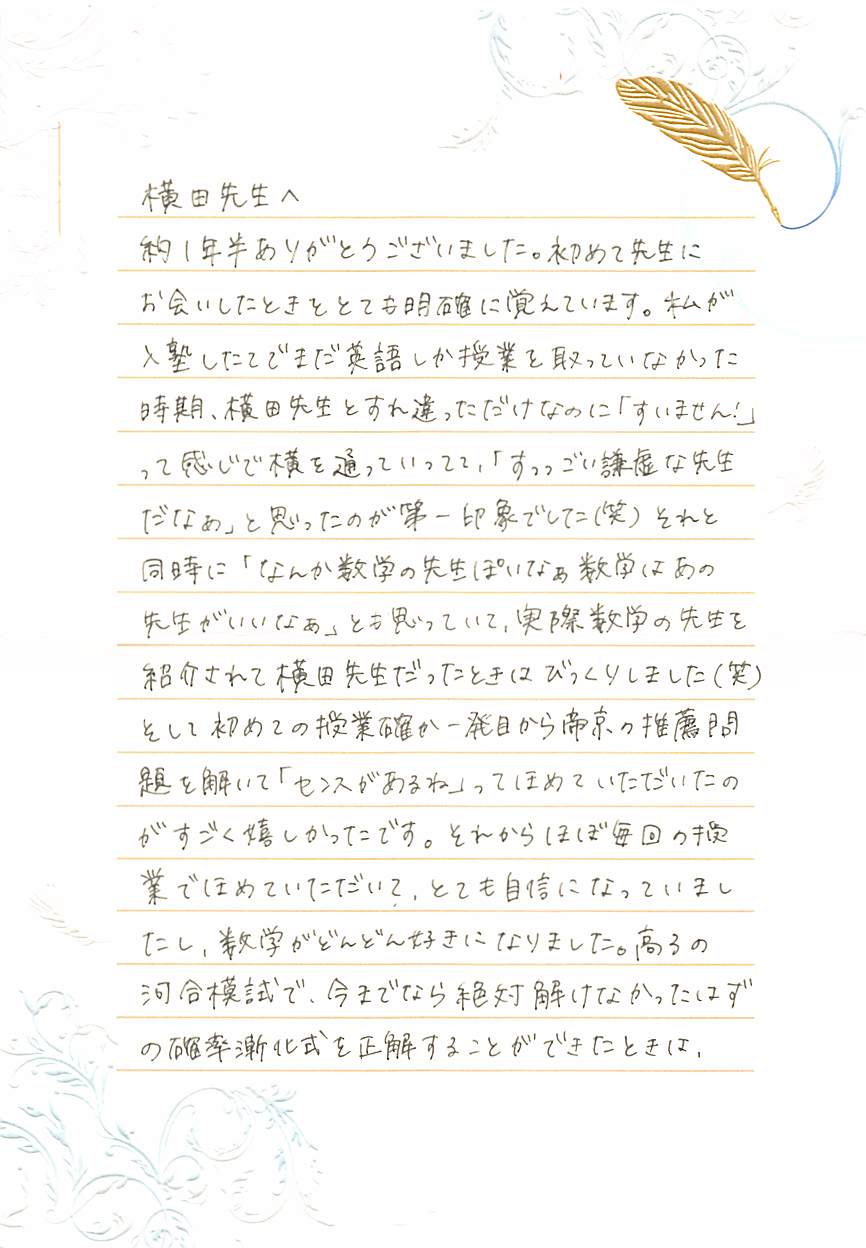 横田先生へ
約1年半ありがとうございました。初めて先生に
お会いしたときをとても明確に覚えています。私が
入塾したてでまだ英語しか授業を取っていなかった
時期、横田先生とすれ違っただけなのに「すいません!」
って感じで横を通っていってて、「すっっごい謙虚な先生
だなぁ」と思ったのが第一印象でした(笑)それと
同時に「なんか数学の先生ぽいなぁ数学はあの
先生がいいなぁ」とも思っていて、実際数学の先生を
紹介されて横田先生だったときはびっくりしました(笑)
そして初めての授業確か一発目から帝京の推薦問
題を解いて「センスがあるね」ってほめていただいたの
がすごく嬉しかったです。それからほぼ毎回の授
業でほめていただいて、とても自信になっていまし
たし、数学がどんどん好きになりました。高3の
河合模試で、今までなら絶対解けなかったはず
の確率漸化式を正解することができたときは、